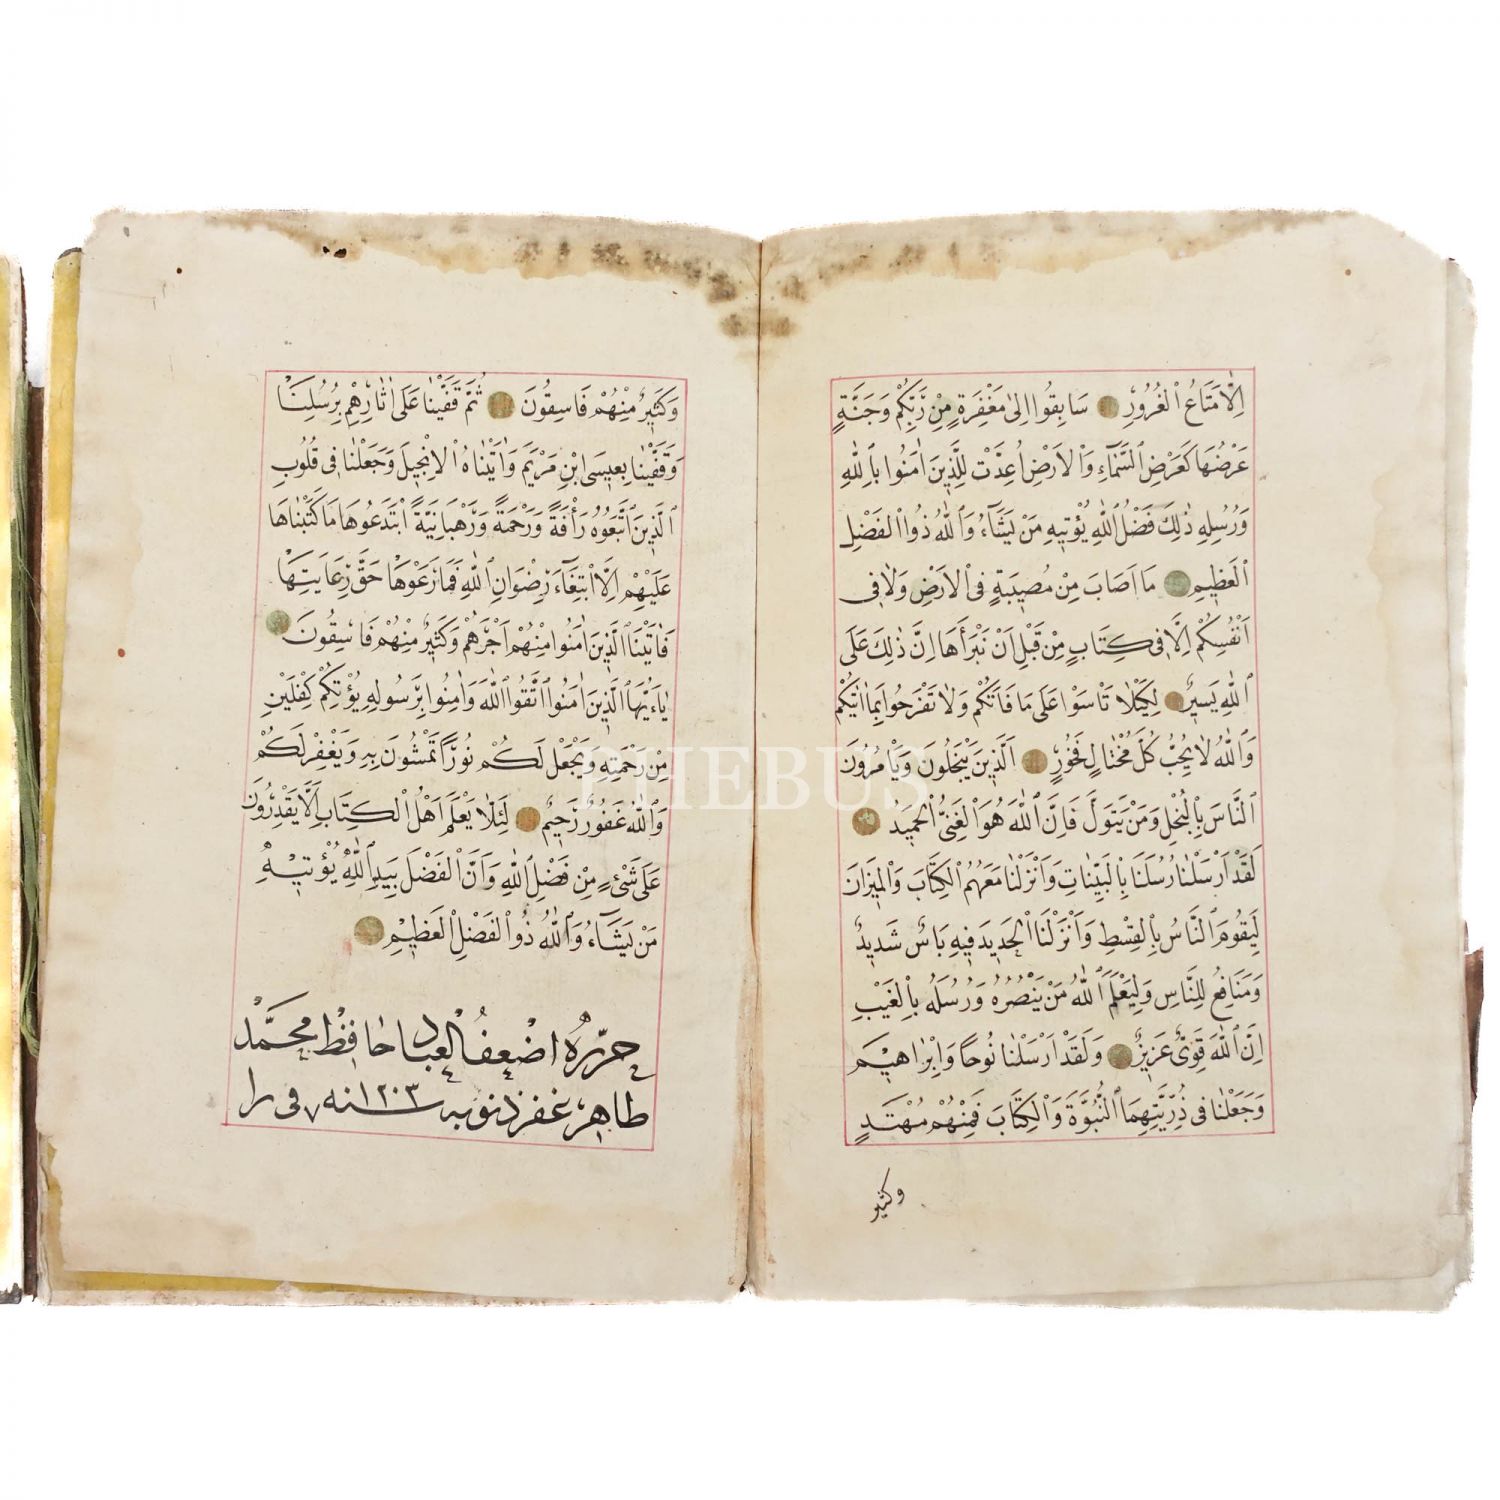 اِلَّا مَتَاعُ الْغُرُورِ سَابِقُوا اِلٰى مَغْفِرَةٍ مِنْ رَبِّكُمْ وَجَنَّةٍ
عَرْضُهَا كَعَرْضِ السَّمَآءِ وَالْاَرْضِ اُعِدَّتْ لِلَّذِينَ اٰمَنُوا بِاللّٰهِ
وَرُسُلِهِ ذٰلِكَ فَضْلُ اللّٰهِ يُؤْتِيهِ مَنْ يَشَآءُ وَاللّٰهُ ذُوا الْفَضْلِ
الْعَظِيمِ مَا اَصَابَ مِنْ مُصِيبَةٍ فِى الْاَرْضِ وَلَا فِى
اَنْفُسِكُمْ اِلَّا فِى كِتَابٍ مِنْ قَبْلِ اَنْ نَبْرَأَهَا اِنَّ ذٰلِكَ عَلَى
اللّٰهِ يَسِيرٌ لِكَيْلَا تَاْسَوْا عَلٰى مَا فَاتَكُمْ وَلَا تَفْرَحُوا بِمَا اٰتٰيكُمْ
وَاللّٰهُ لَا يُحِبُّ كُلَّ مُخْتَالٍ فَخُورٍ اَلَّذِينَ يَبْخَلُونَ وَيَاْمُرُونَ
النَّاسَ بِالْبُخْلِ وَمَنْ يَتَوَلَّ فَاِنَّ اللّٰهَ هُوَ الْغَنِىُّ الْحَمِيدُ
لَقَدْ اَرْسَلْنَا رُسُلَنَا بِالْبَيِّنَاتِ وَاَنْزَلْنَا مَعَهُمُ الْكِتَابَ وَالْمِيزَانَ
لِيَقُومَ النَّاسُ بِالْقِسْطِ وَاَنْزَلْنَا الْحَدِيدَ فِيهِ بَاْسٌ شَدِيدٌ
وَمَنَافِعُ لِلنَّاسِ وَلِيَعْلَمَ اللّٰهُ مَنْ يَنْصُرُهُ وَرُسُلَهُ بِالْغَيْبِ
اِنَّ اللّٰهَ قَوِىٌّ عَزِيزٌ وَلَقَدْ اَرْسَلْنَا نُوحًا وَاِبْرٰاهِيمَ
وَجَعَلْنَا فِى ذُرِّيَّتِهِمَا النُّبُوَّةَ وَالْكِتَابَ فَمِنْهُمْ مُهْتَدٍ
وكثير
وَكَثِيرٌ مِنْهُمْ فَاسِقُونَ ثُمَّ قَفَّيْنَا عَلٰى اٰثَارِهِمْ بِرُسُلِنَا
وَقَفَّيْنَا بِعِيسَى ابْنِ مَرْيَمَ وَاٰتَيْنَاهُ الْاِنْجِيلَ وَجَعَلْنَا فِى قُلُوبِ
الَّذِينَ اتَّبَعُوهُ رَأْفَةً وَرَحْمَةً وَرَهْبَانِيَّةً ابْتَدَعُوهَا مَا كَتَبْنَاهَا
عَلَيْهِمْ اِلَّا ابْتِغَآءَ رِضْوَانِ اللّٰهِ فَمَا رَعَوْهَا حَقَّ رِعَايَتِهَا
فَاٰتَيْنَا الَّذِينَ اٰمَنُوا مِنْهُمْ اَجْرَهُمْ وَكَثِيرٌ مِنْهُمْ فَاسِقُونَ
يَاءَيُّهَا الَّذِينَ اٰمَنُوا اتَّقُوا اللّٰهَ وَاٰمِنُوا بِرَسُولِهِ يُؤْتِكُمْ كِفْلَيْنِ
مِنْ رَحْمَتِهِ وَيَجْعَلْ لَكُمْ نُورًا تَمْشُونَ بِهِ وَيَغْفِرْ لَكُمْ
وَاللّٰهُ غَفُورٌ رَحِيمٌ لِئَلَّا يَعْلَمَ اَهْلُ الْكِتَابِ اَلَّا يَقْدِرُونَ
عَلٰى شَىْءٍ مِنْ فَضْلِ اللّٰهِ وَاَنَّ الْفَضْلَ بِيَدِ اللّٰهِ يُؤْتِيهِ
مَنْ يَشَآءُ وَاللّٰهُ ذُو الْفَضْلِ الْعَظِيمِ
حرّره اضعف العباد حافظ محمّد
طاهر غفر ذنوبه سنه ١٢٠٣ فى ٧ را
PHEBUS